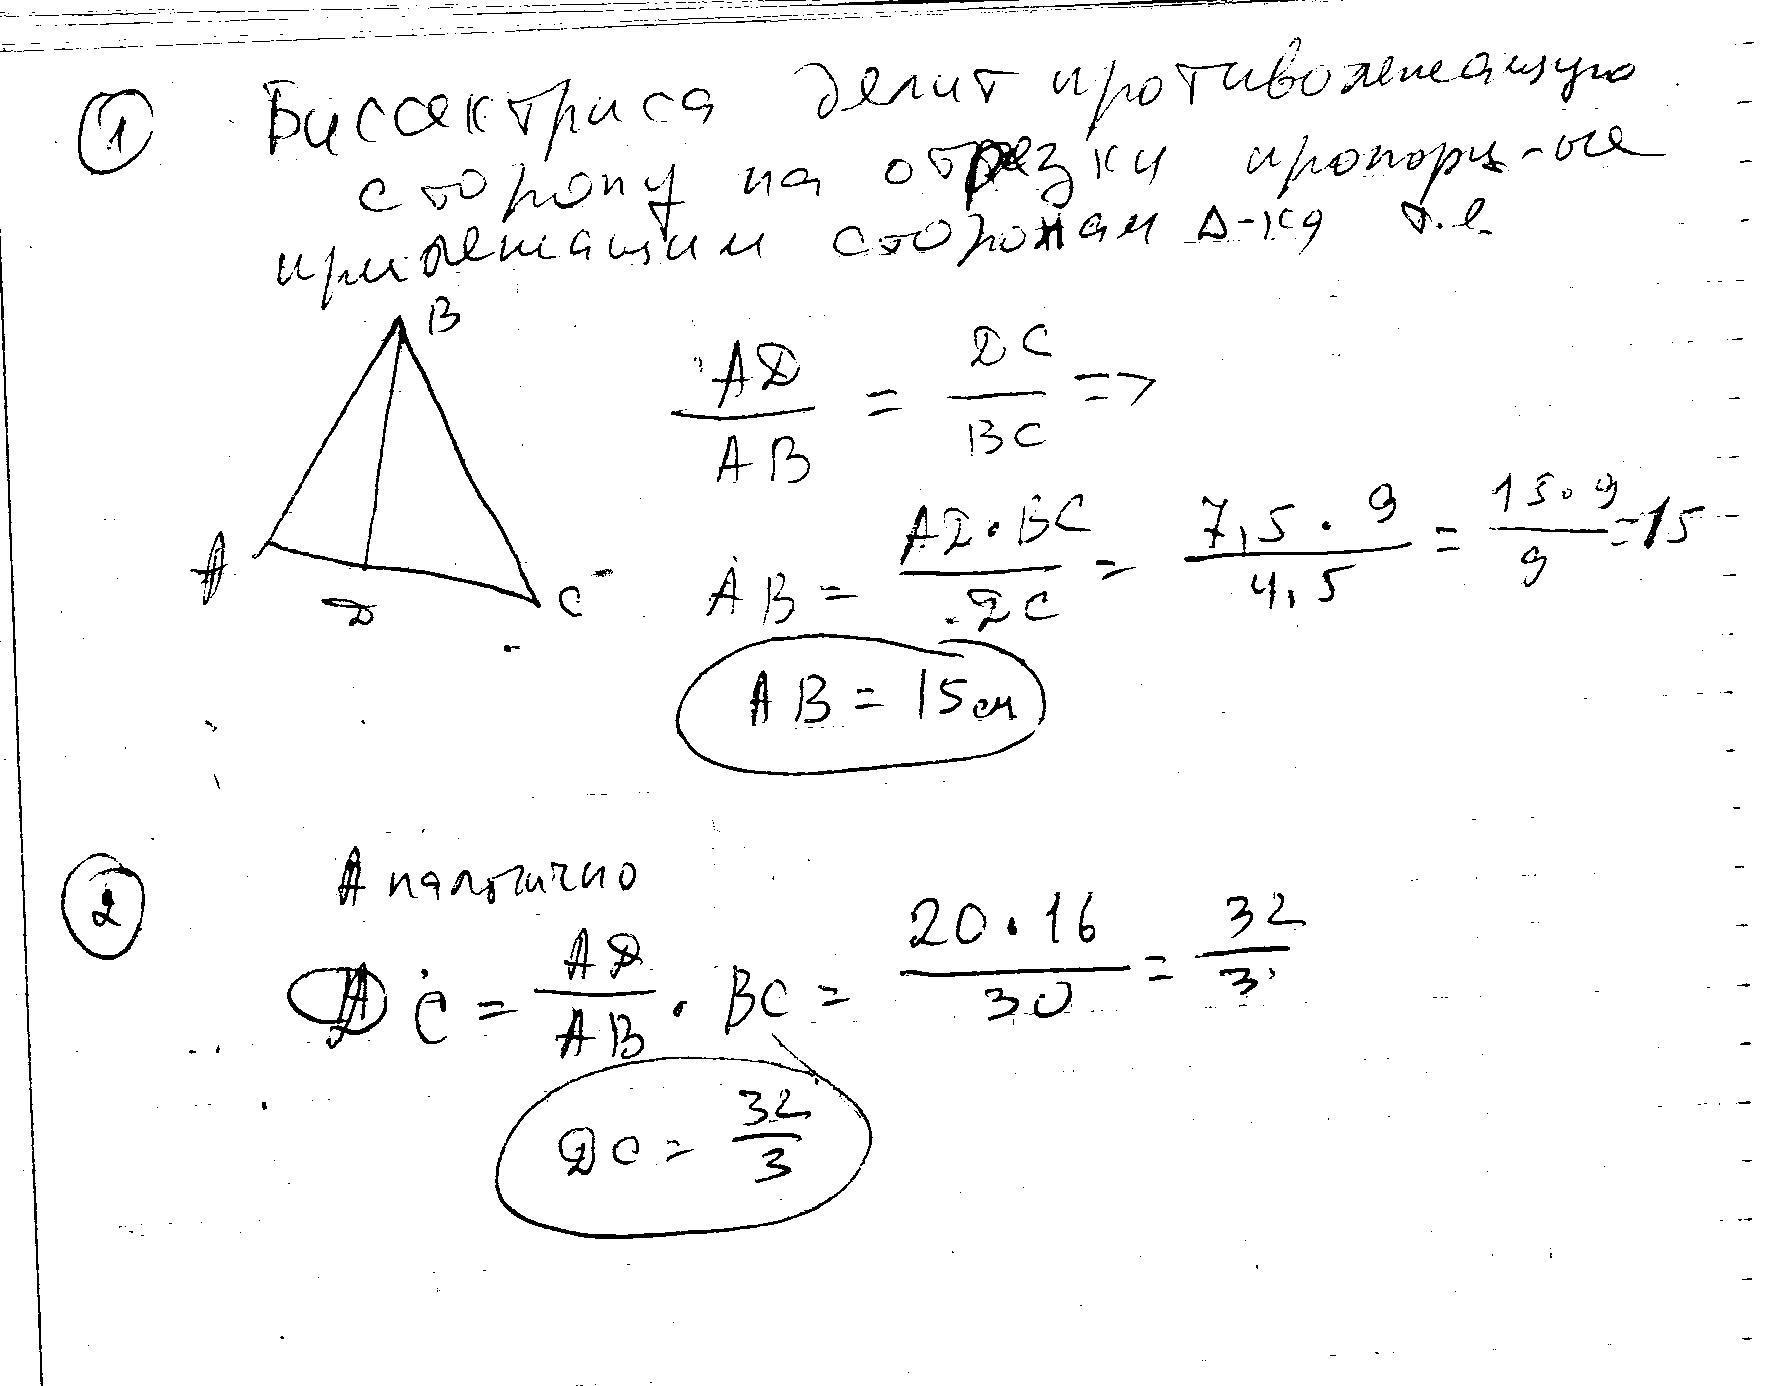 1 Биссектриса делит противолежащую
сторону на отрезки пропорц-ые
прилежащим сторонам Δ-ка т.е.
B
A
D
C
AD/AB = DC/BC =>
AB = AD·BC/DC = 7,5·9/4,5 = 15·9/9 = 15
AB = 15 см
2 Аналогично
DC = AD/AB · BC = 20·16/30 = 32/3
DC = 32/3